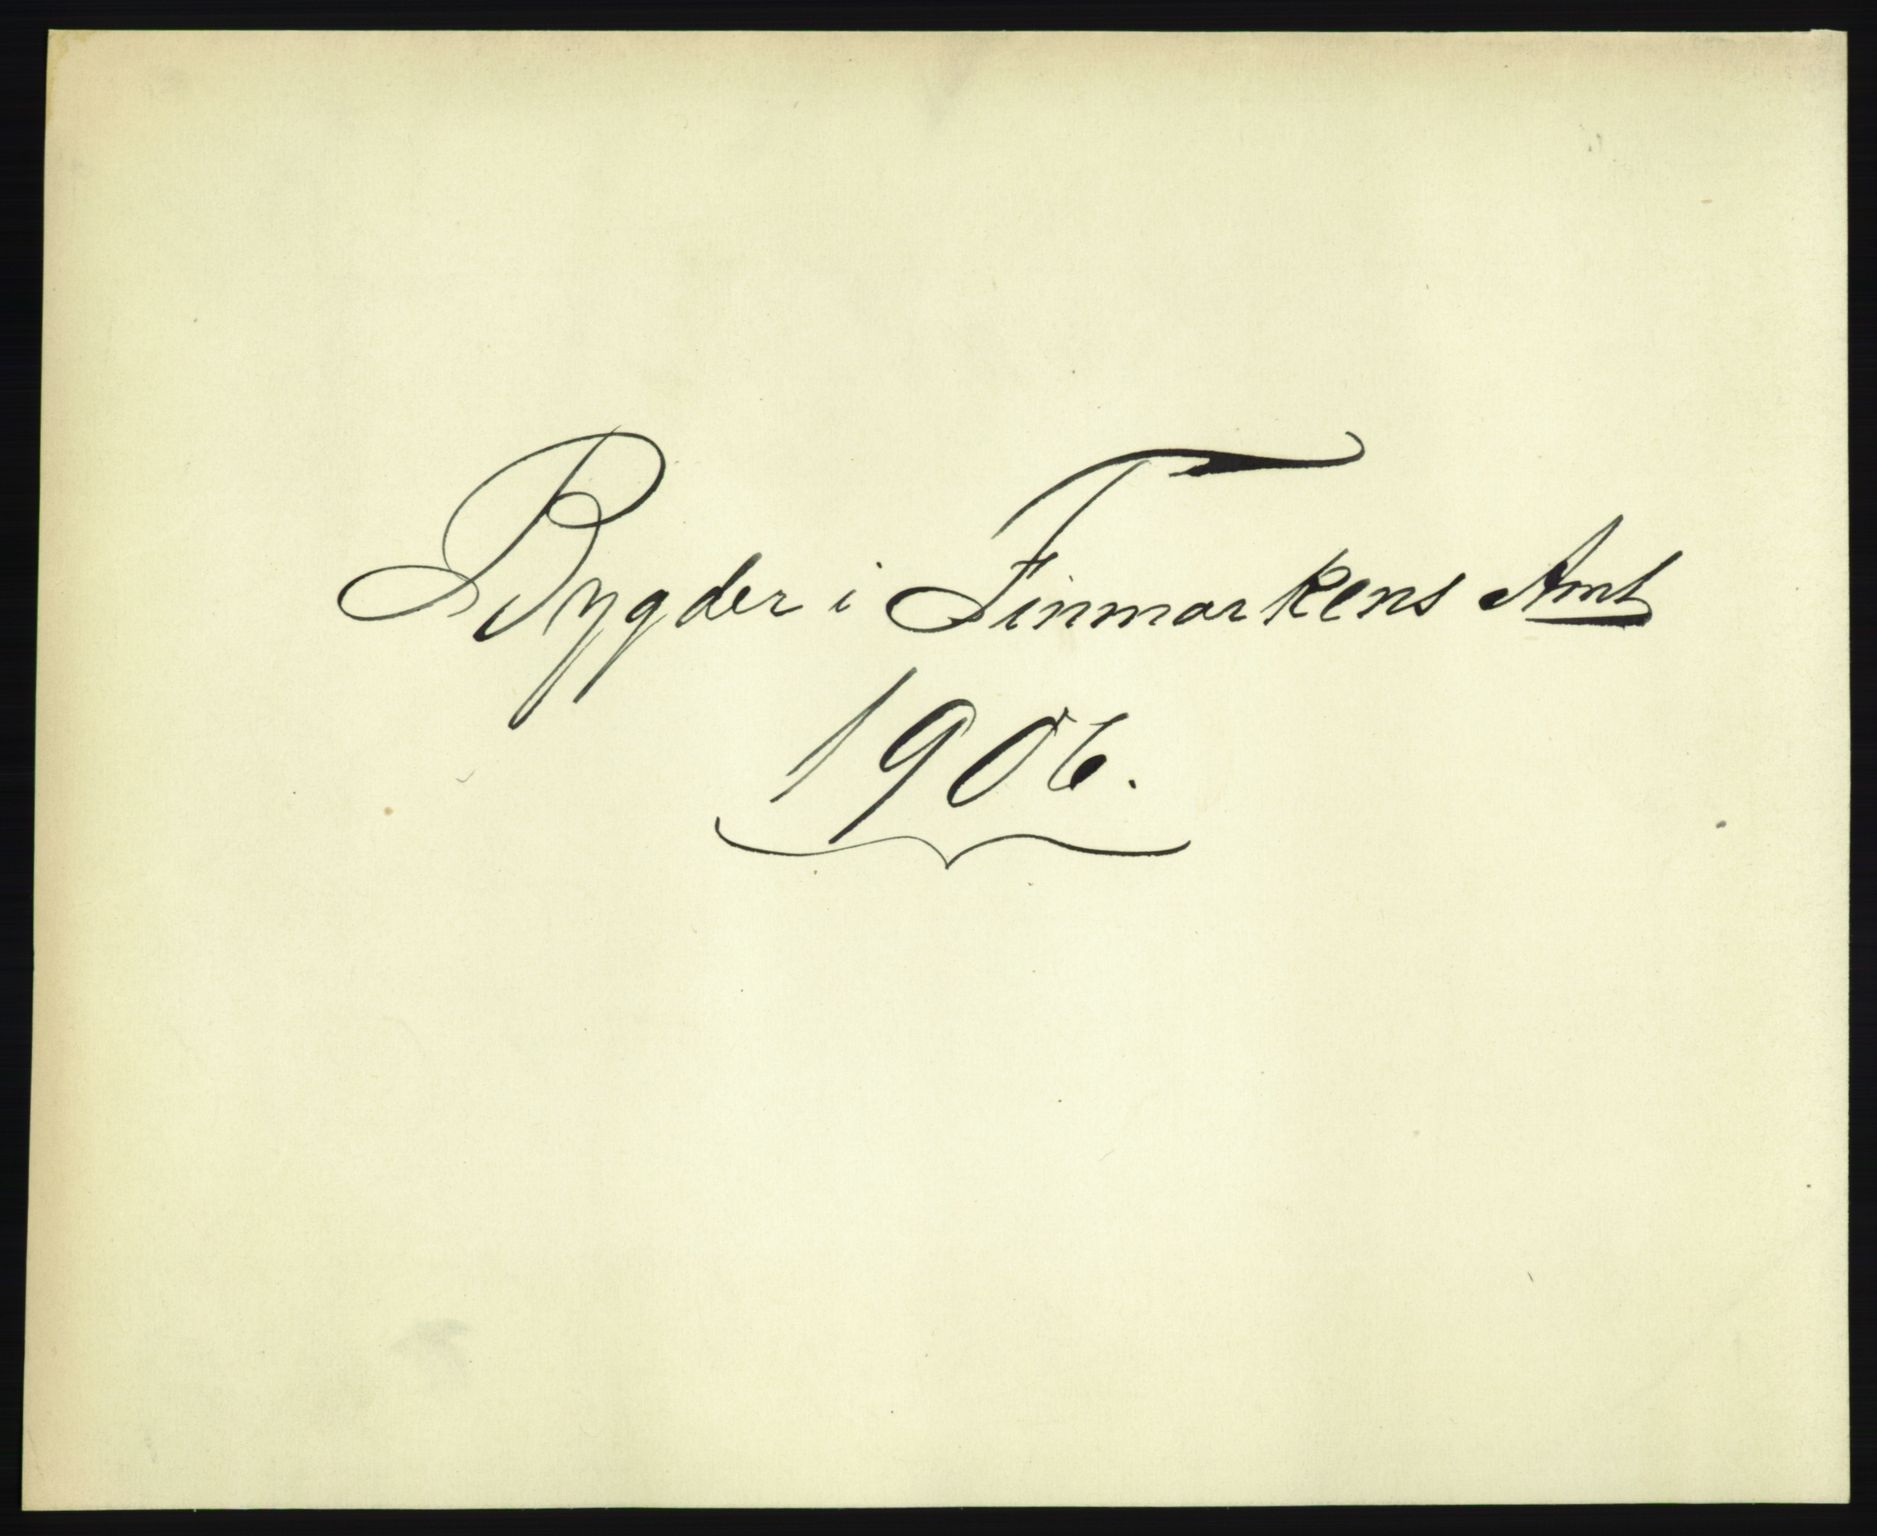 Bygder i Finmarkens Amt
1906.